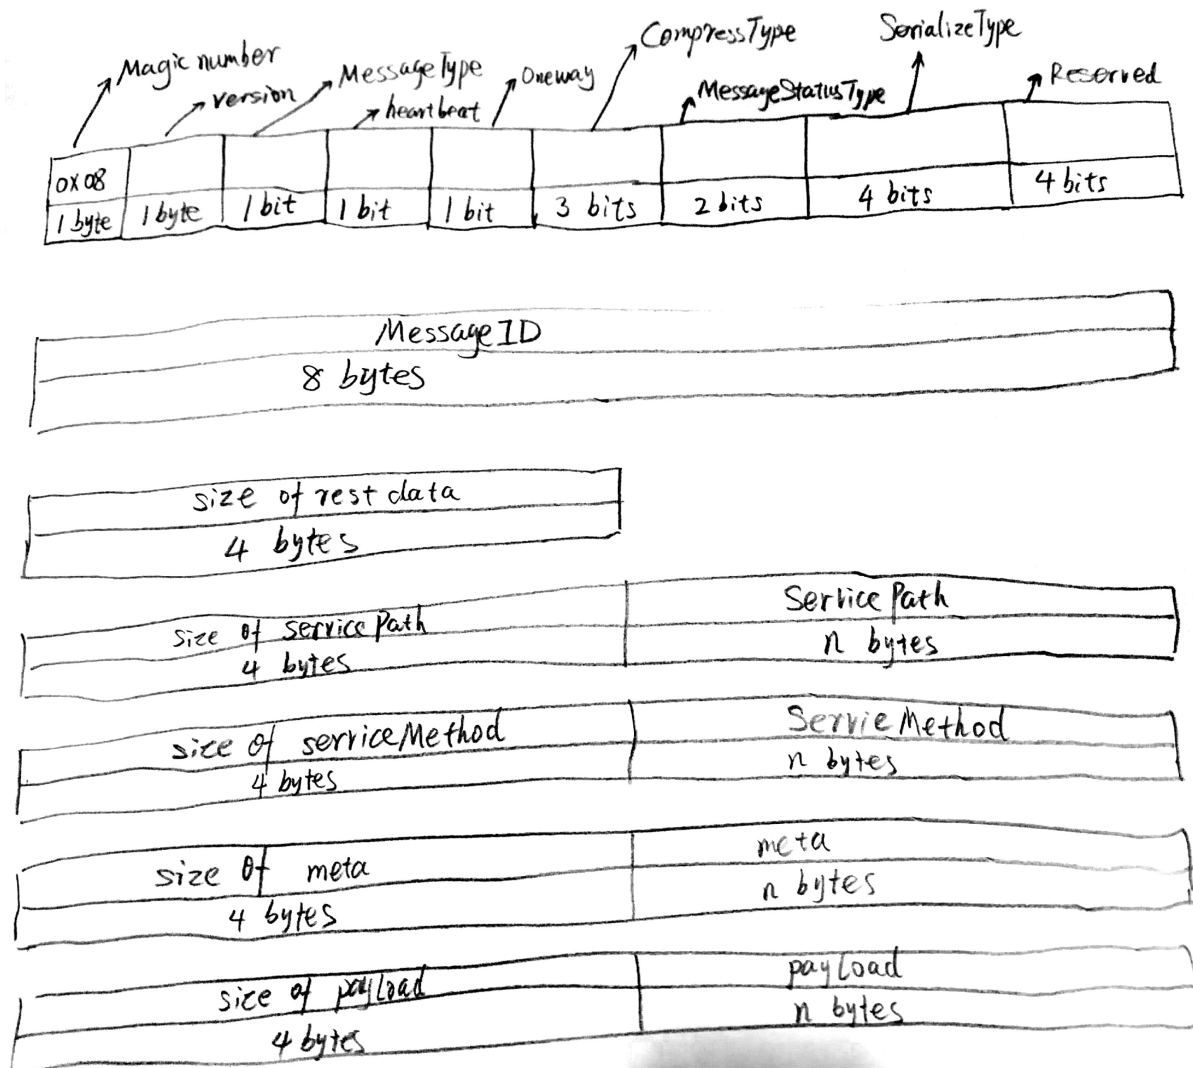 Magic number
version
MessageType
heartbeat
Oneway
CompressType
MessageStatusType
SerializeType
Reserved
0x08
1 byte 1 byte 1 bit 1 bit 1 bit 3 bits 2 bits 4 bits 4 bits
MessageID
8 bytes
size of rest data
4 bytes
size of servicePath ServicePath
4 bytes n bytes
size of serviceMethod ServieMethod
4 bytes n bytes
size of meta meta
4 bytes n bytes
size of payLoad payLoad
4 bytes n bytes